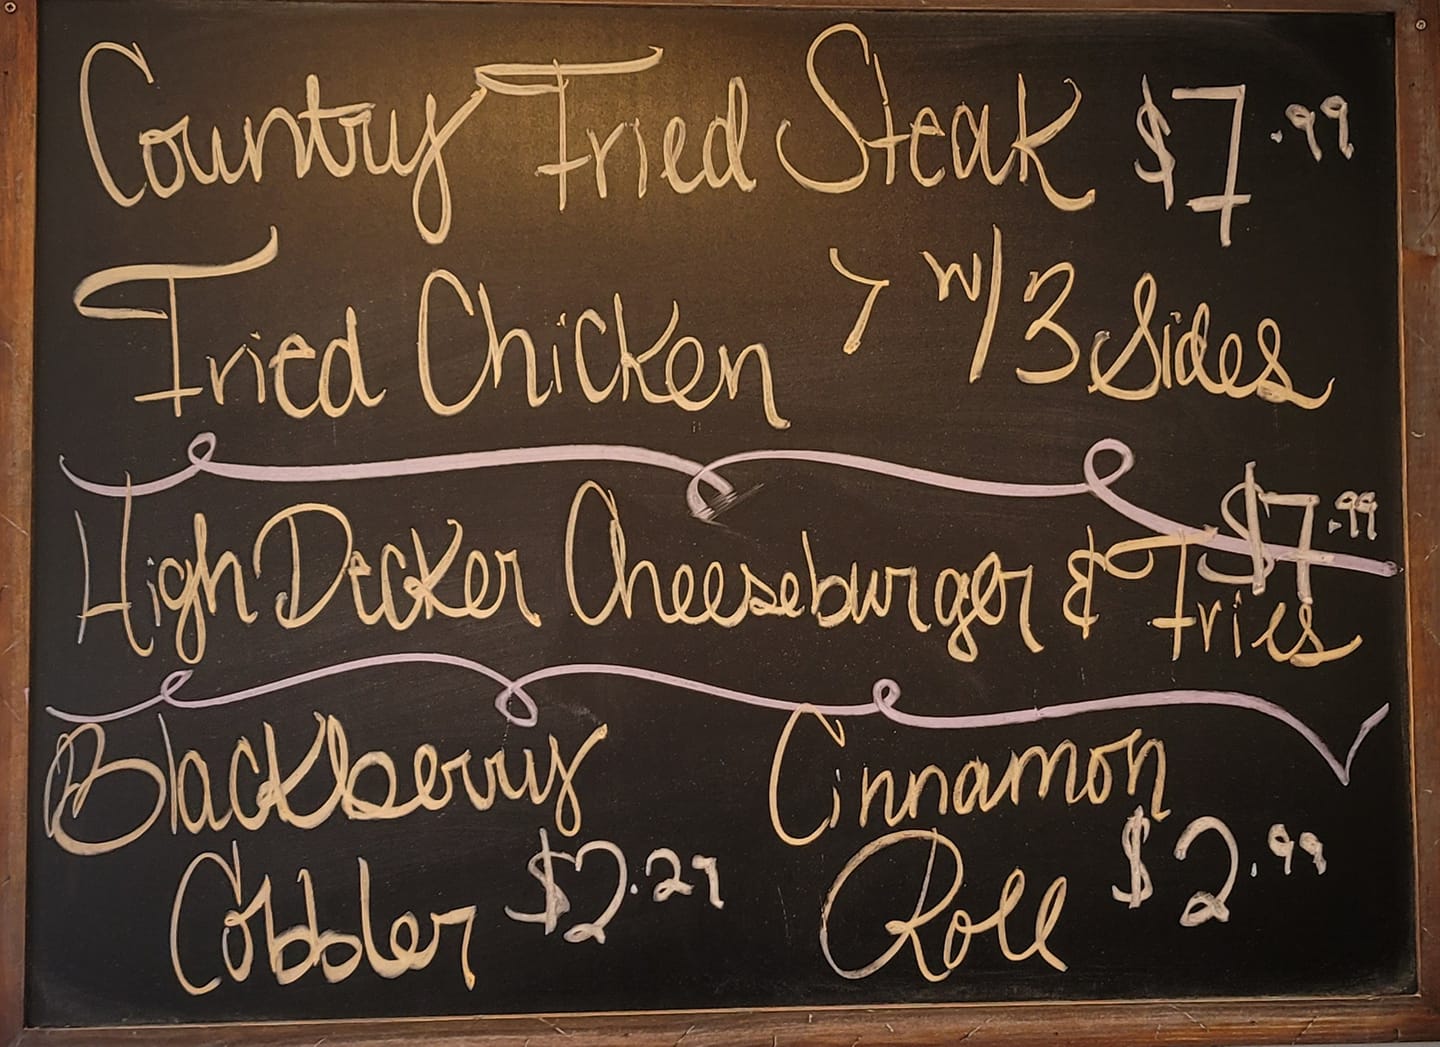 Country Fried Steak $7.99
Fried Chicken > w/3 Sides
High Decker Cheeseburger & Fries $7.99
Blackberry Cobbler $2.29
Cinnamon Roll $2.99